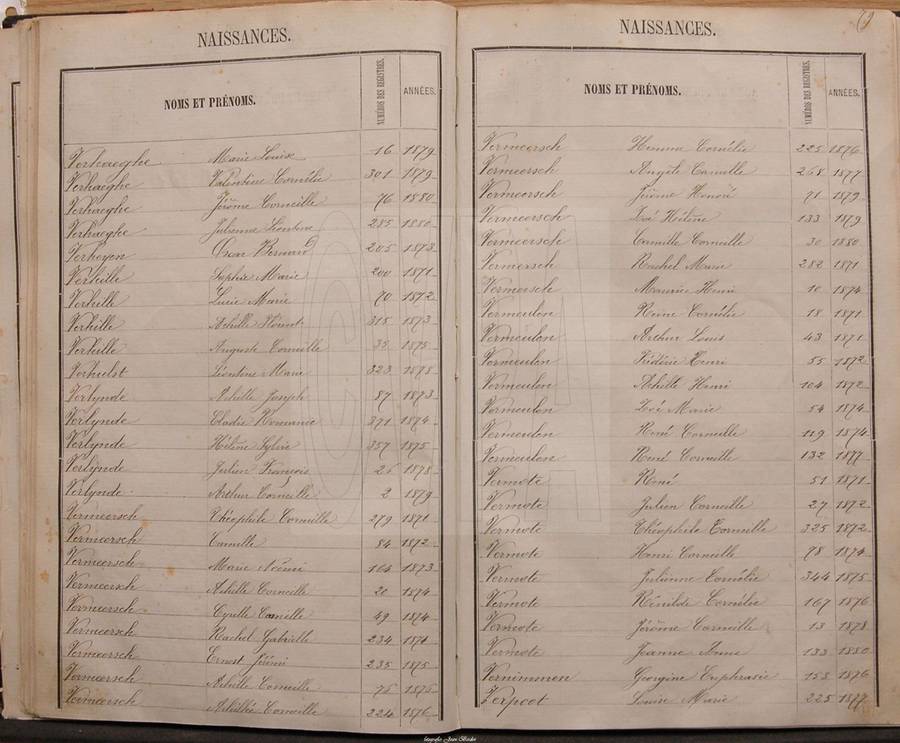 NAISSANCES.
NOMS ET PRÉNOMS.
NUMÉROS DES REGISTRES.
ANNÉES.
Verhaeghe Marie Louise 16 1879
Verhaeghe Valentine Cornélie 301 1879
Verhaeghe Jérôme Corneille 76 1880
Verhaeghe Julienne Léontine 285 1880
Verhoyen Oscar Bernard 205 1873
Verhille Sophie Marie 200 1871
Verhille Lucie Marie 70 1872
Verhille Achille 315 1873
Verhille Auguste Corneille 35 1875
Verhulst Léontine Marie 323 1878
Verlynde Achille Joseph 87 1873
Verlynde Elodie Romanie 371 1874
Verlynde Hélène Sylvie 357 1875
Verlynde Julien François 26 1878
Verlynde Arthur Corneille 2 1879
Vermeersch Théophile Corneille 279 1871
Vermeersch Camille 84 1872
Vermeersch Marie Noémi 104 1873
Vermeersch Achille Corneille 20 1874
Vermeersch Cyrille Camille 49 1874
Vermeersch Rachel Gabrielle 234 1874
Vermeersch Ernest Jérémi 235 1875
Vermeersch Achille Corneille 75 1875
Vermeersch Achille Corneille 224 1876
NAISSANCES.
NOMS ET PRÉNOMS.
NUMÉROS DES REGISTRES.
ANNÉES.
Vermeersch Hemma Cornélie 225 1876
Vermeersch Angèle Camille 268 1877
Vermeersch Jérôme Honoré 71 1879
Vermeersch Zoé 133 1879
Vermeersch Camille Corneille 30 1880
Vermersch Rachel Marie 282 1871
Vermersch Maurice Henri 10 1874
Vermeulen Reine Cornélie 18 1871
Vermeulen Arthur Louis 43 1871
Vermeulen Frédéric Henri 55 1872
Vermeulen Achille Henri 104 1872
Vermeulen Zoé Marie 54 1874
Vermeulen René Corneille 119 1874
Vermeulen René Corneille 132 1877
Vermote René 51 1871
Vermote Julien Corneille 27 1872
Vermote Théophile Corneille 325 1872
Vermote Henri Corneille 78 1874
Vermote Julienne Cornélie 344 1875
Vermote Rénilde Cornélie 167 1876
Vermote Jérôme Corneille 13 1878
Vermote Jeanne Anne 133 1880
Vernimmen Georgine Euphrasie 153 1876
Verpoot Louise Marie 225 1877